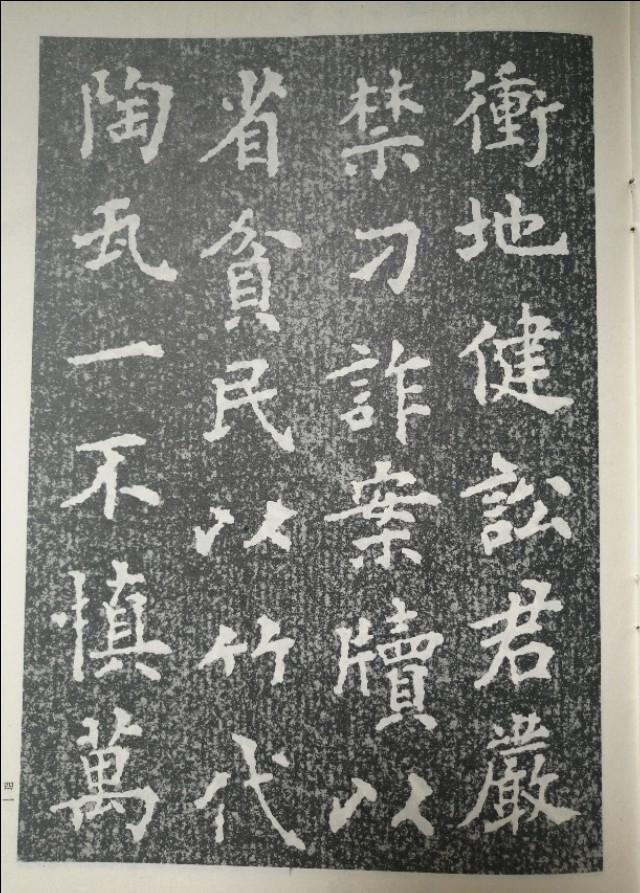 衝地健訟君嚴
禁刁詐案牘以
省貧民以竹代
陶瓦一不慎萬
四一